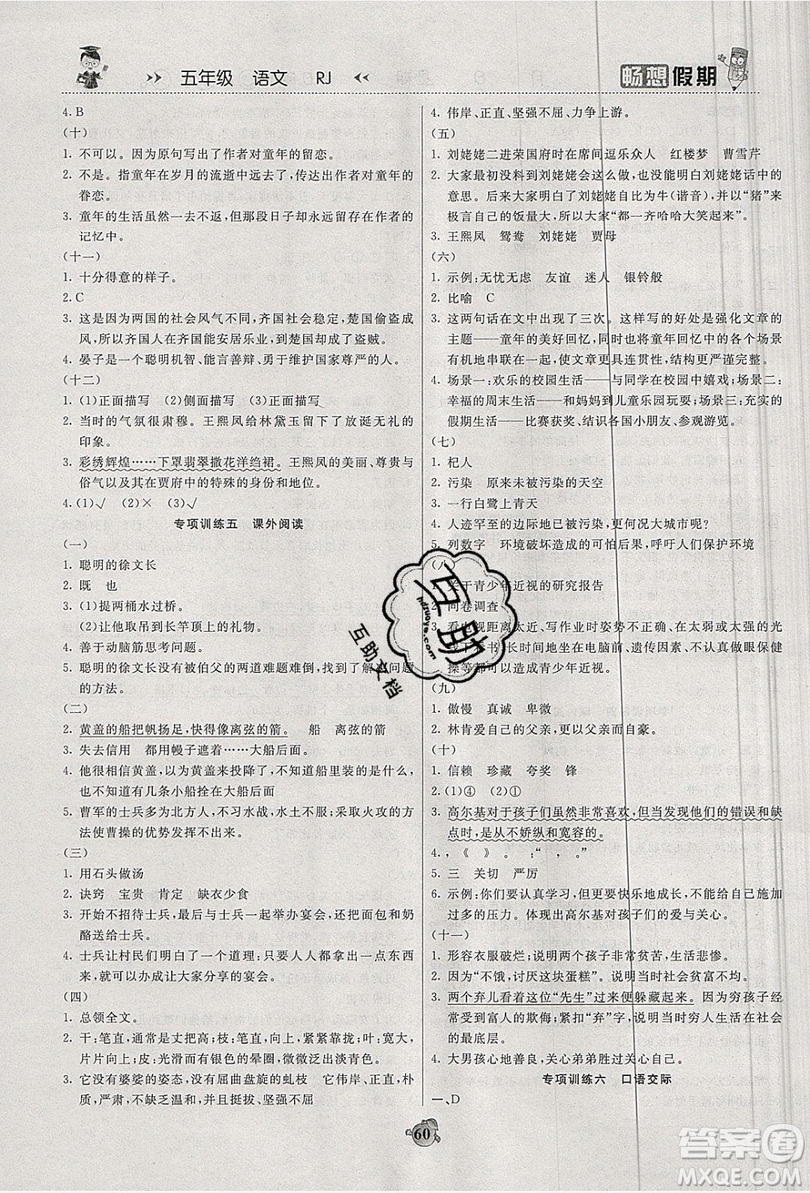 五年级 语文 RJ
畅想假期
4. B
(十)
1. 不可以。因为原句写出了作者对童年的留恋。
2. 不是。指童年在岁月的流逝中远去,传达出作者对童年的
眷恋。
3. 童年的生活虽然一去不返,但那段日子却永远留存在作者的
记忆中。
(十一)
1. 十分得意的样子。
2. C
3. 这是因为两国的社会风气不同,齐国社会稳定,楚国偷盗成
风,所以齐国人在齐国能安居乐业,到楚国就偷盗。
4. 晏子是一个聪明机智、能言善辩、勇于维护国家尊严的人。
(十二)
1. (1)正面描写 (2)侧面描写 (3)正面描写
2. 当时的气氛很肃穆。王熙凤的出场给林黛玉留下了无礼的
印象。
3. 彩绣辉煌……下罩翡翠撒花洋绉裙。王熙凤的美丽、尊贵与
俗气以及其在贾府中的特殊的身份和地位。
4. (1)√ (2)× (3)√
专项训练五 课外阅读
(一)
1. 聪明的徐文长
2. 既 也
3. (1)提两桶水过桥。
(2)让他取到长竿顶上的礼物。
4. 善于动脑筋思考问题。
5. 聪明的徐文长没有被伯父的两道难题难倒,找到了解决问题
的方法。
(二)
2. 黄盖的船把帆扬足,快得像离弦的箭。 船 离弦的箭
3. 失去信用 都用幔子遮着……大船后面
4. 他们相信黄盖是来投降的,并不知道船里装的是什么,也并
不知道有几条小船拴在大船后面
5. 曹军的士兵多为北方人,不习水战,战船用铁索相连。火攻
使曹操的优势发挥不出来。
(三)
1. 用石头做汤
2. 诀窍 宝贵 肯定 缺衣少食
3. 开始不招待士兵,后来给士兵送蔬菜,最后竟送肉、面包和奶
酪送去给士兵享用。
4. 士兵让村民们明白了一个道理:只要每人拿出一点点东西
来,就可以办成让大家分享的宴会。
(四)
1. 总领全文。
2. 干;笔直,通常是丈把高;枝:笔直,向上,紧紧靠拢;叶:宽大,
片片向上;皮:光滑而有银色的晕圈,微微泛出淡青色。
3. 它没有婆娑的姿态,没有屈曲盘旋的虬枝 它伟岸,正直,朴
质,严肃,不缺乏温和,坚强不屈与挺拔
4. 伟岸、正直、坚强不屈、力争上游。
(五)
1. 刘姥姥二进荣国府时在席间逗乐众人 红楼梦 曹雪芹
2. 大家最初没料到刘姥姥会这么做,也没反应过来刘姥姥话中的
意思。后来,刘姥姥把自己比为牛(谐音),而以“猪”来
极言自己的饭量大,所以,“都一齐哈哈大笑起来”。
3. 王熙凤 鸳鸯 刘姥姥 贾母
(六)
1. 示例:无忧无虑 友谊 迷人 银铃般
2. 比喻 C
3. 这两句话在文中出现了三次。这样写的好处是强化文章的
主题——童年的美好回忆,引出对童年的回忆,将各个场景
有机地串连在一起,使文章更具连贯性,结构更严谨完整。
4. 场景一:欢乐的校园生活——与同学在校园中嬉戏;场景二:
幸福的周末生活——和妈妈到儿童乐园玩耍;场景三:充实的
假期生活——比赛获奖、结识各国小朋友、参观游览。
(七)
1. 杞人
2. 污染 原来未被污染的天空
3. 一行白鹭上青天
4. 人迹罕至的边际地已被污染,更何况别的地方呢?
5. 列数字 环境破坏造成的可怕后果,呼吁人们保护环境
(八)
1. 关于青少年近视的研究报告
2. 问卷调查
3. 看电视距离太近,写作业时姿势不正确,在太弱或太强的灯
光或太阳下看书,长时间坐在电脑前、遗传因素、不认真做眼保健
操等都可以造成青少年近视。
(九)
1. 傲慢 真诚 卑微
2. 林肯爱自己的父亲,更以父亲而自豪。
(十)
1. 信赖 珍藏 夸奖 锋
2. (1)④ (2)①
3. 高尔基对于孩子们虽然非常喜欢,但发现他们的错误和缺
点时,是从不娇纵和宽容的。
4. , 《 》 。 :“ , ”。
5. 三 关切 严厉
6. 示例:你们要认真学习,但更要快乐地成长,不要给自己施加
过多的压力。体现出高尔基对孩子们的爱与关心。
(十一)
1. 形容衣服破烂;说明两个孩子非常贫苦,生活悲惨。
2. 因为“不饿,讨厌这块蛋糕”。引起读者的思考。
3. 两个弃儿看着这位“先生”过来便躲藏起来。因为他们经常
受到富人的欺侮;紧扣“弃”字,说明当时穷人生活在社会
的最底层。
4. 大男孩心地善良,关心弟弟胜过关心自己。
专项训练六 口语交际
一、D
60
互助
huzuoye.com
互助文档
答案圈
MXQE.COM